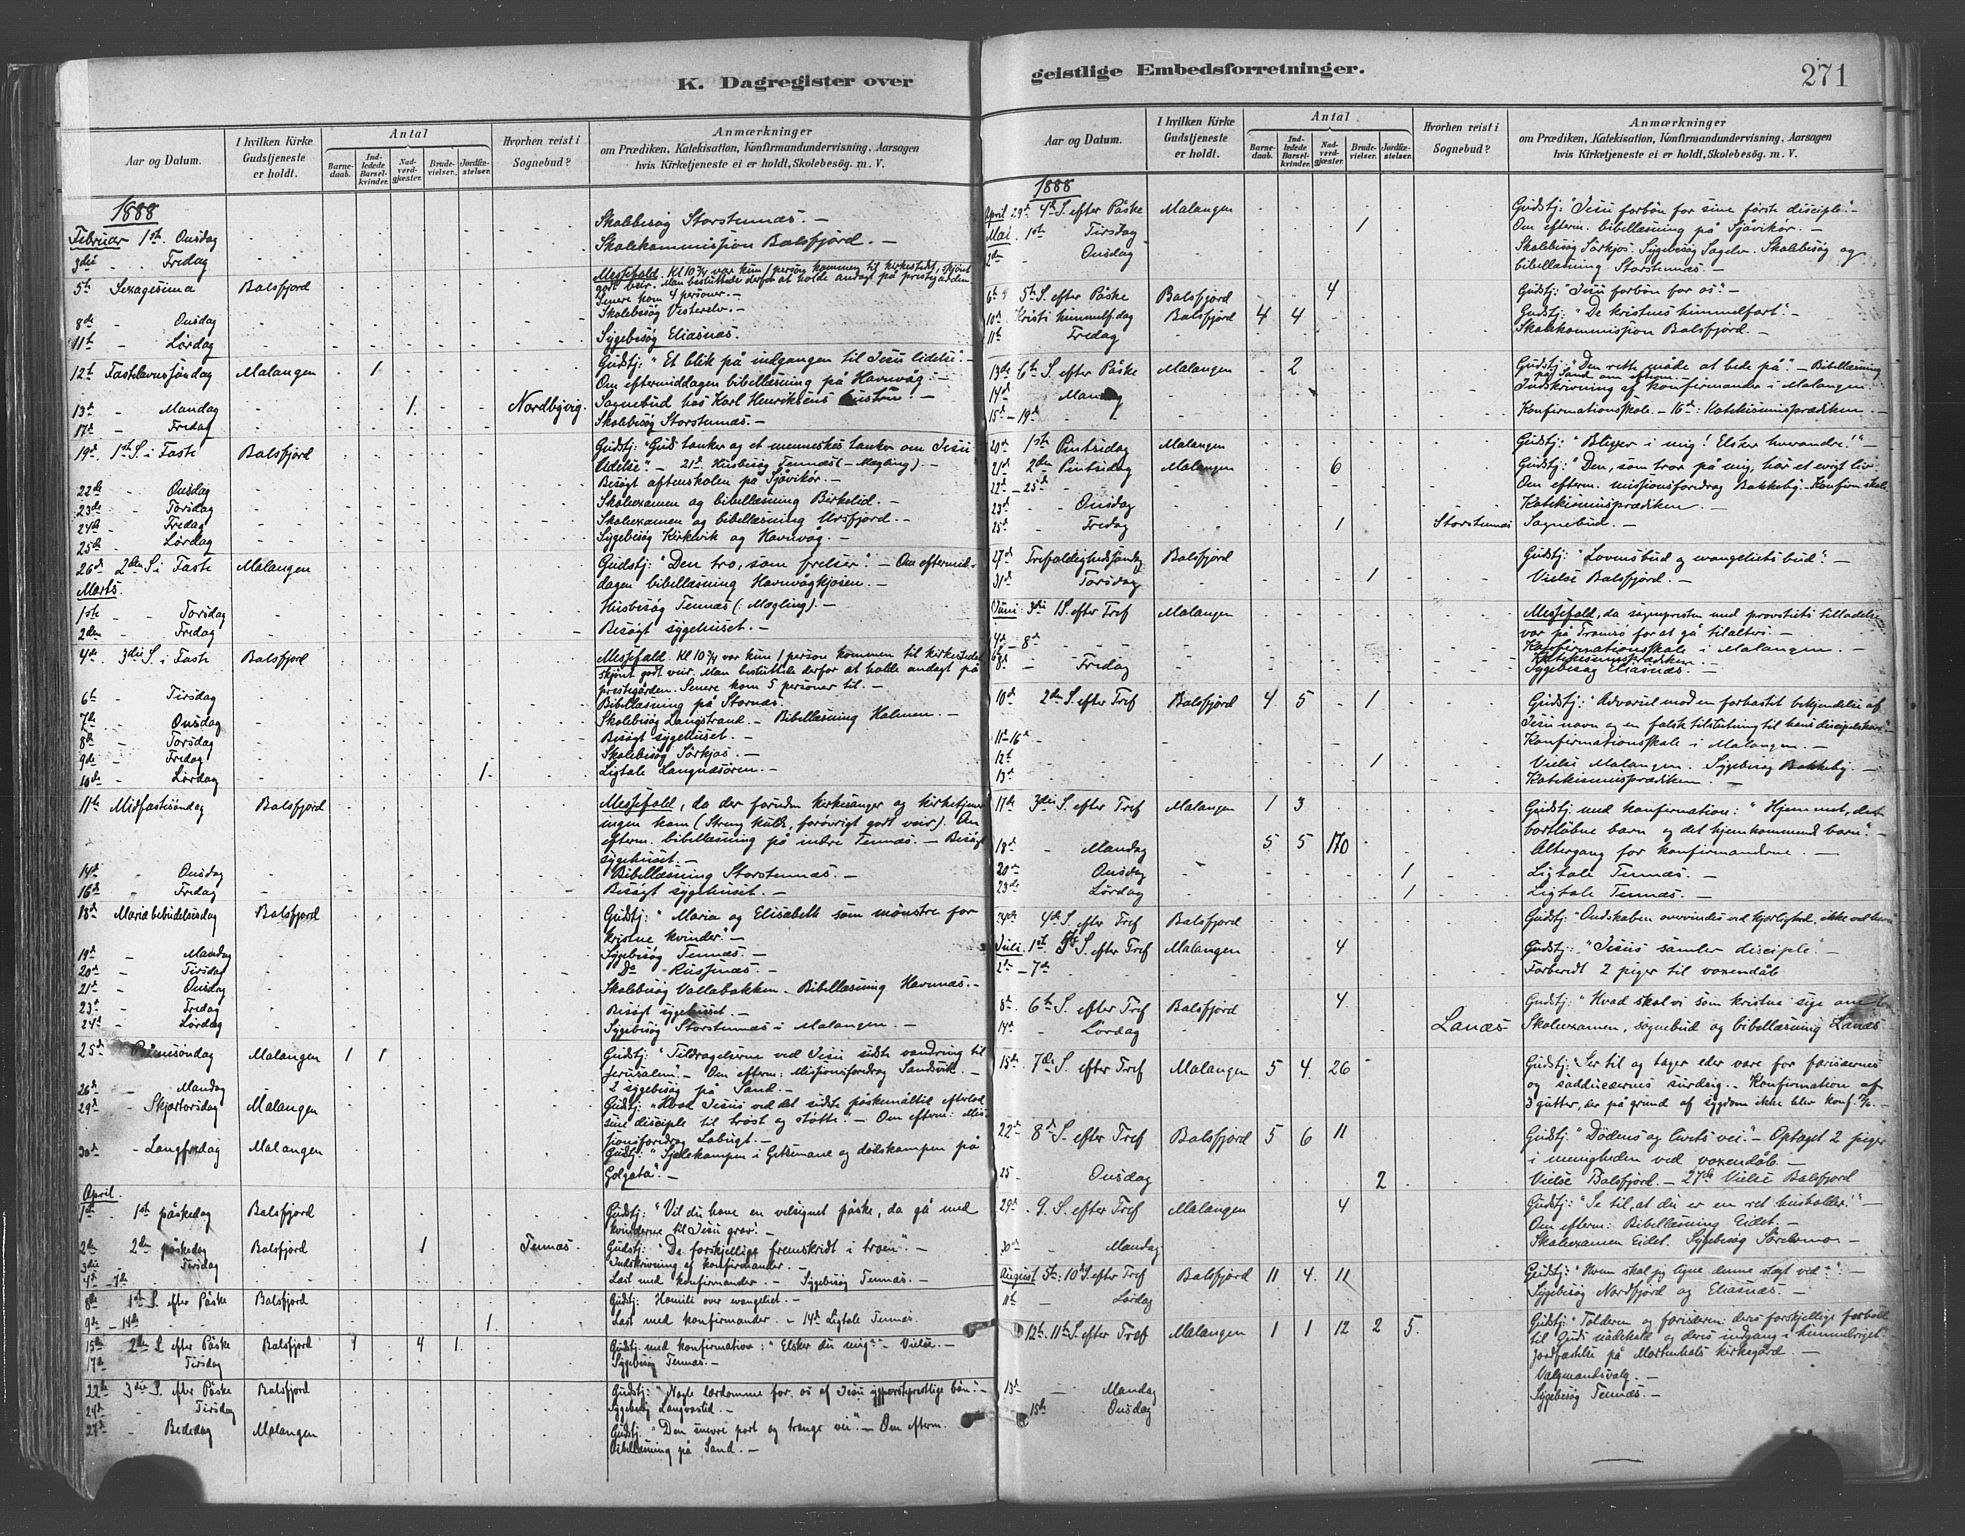 K. Dagregister over
Aar og Datum.
I hvilken Kirke Gudstjeneste er holdt.
Antal
Barnedaab.
Indledede Barselkvinder.
Nadverdgjæster.
Brudevielser.
Jordfæstelser.
Hvorhen reist i Sognebud?
Anmærkninger
om Prædiken, Katekisation, Konfirmandundervisning, Aarsagen
hvis Kirketjeneste ei er holdt, Skolebesøg. m. V.
1888
Skolebesög Storstennæs. —
Februar 1ste Onsdag Skolekommission Balsfjord. —
3die Fredag
5te Sexagesima Balsfjord Messefald. Kl 10 3/4 var kun 1 person kommen til kirkestedet, skjönt
godt veir. Man besluttede derfor at holde andagt på prestegården.
Senere kom 4 personer. —
8de Onsdag Skolebesög Vesterelv. —
11te Lördag Sygebesög Eliasnæs.
12te Fastelavnssöndag Malangen 1 Gudstj: "Et blik på indgangen til Jesu lidelse". —
Om eftermiddagen bibellæsning på Havnvåg. —
13de Mandag 1 Nordbyvig. Sognebud hos Karl Henriksens
17de Fredag Skolebesög Storstennæs. —
19de 1ste S. i Faste Balsfjord Gudstj: "Guds tanker og et menneskes tanker om Jesu
lidelse". — 21de Husbesög Tennæs (Mægling). —
22de Onsdag Besögt aftenskolen på Sjåvikör. —
23de Torsdag Skoleexamen og bibellæsning Birkelid. —
24de Fredag Skoleexamen og bibellæsning Ursfjord. —
25de Lördag Sygebesög Kirkevik og Havnvåg. —
26de 2den S. i Faste Malangen Gudstj: "Den tro, som frelser". — Om eftermid-
dagen bibellæsning Havnvågkjosen. —
Marts.
1ste Torsdag Husbesög Tennæs (Mægling). —
2den Fredag Besögt sygehuset. —
4de 3die S. i Faste Balsfjord Messefald. Kl 10 3/4 var kun 1 person kommen til kirkestedet
skjönt godt veir. Man besluttede derfor at holde andagt på
prestegården. Senere kom 5 personer til. —
6te Tirsdag Bibellæsning på Stornæs.
7de Onsdag Skolebesög Langstrand. — Bibellæsning Holmen. —
8de Torsdag Besögt sygehuset. —
9de Fredag Skolebesög Sörkjos. —
10de Lördag 1. Ligtale Langnæsören. —
11te Midfastesöndag Balsfjord Messefald, da der foruden kirkesanger og kirketjener
ingen kom (Streng kulde, forövrigt godt veir). Om
efterm. bibellæsning på indre Tennæs. — Besögt
sygehuset. —
14de Onsdag Bibellæsning Storstennæs. —
16de Fredag Besögt sygehuset. —
18de Mariæ bebudelsesdag Balsfjord Gudstj: "Maria og Elisabeth som mönstre for
kristne kvinder". —
19de Mandag Sygebesög Tennæs. —
20de Tirsdag Do Russenæs. —
21de Onsdag Skolebesög Vollabakken. Bibellæsning Havnnæs. —
23de Fredag Besögt sygehuset. —
24de Lördag Sygebesög Storstennæs i Malangen. —
25de Palmesöndag Malangen 1 1 Gudstj: "Tildragelserne ved Jesu sidste vandring til
Jerusalem". — Om efterm: Missionsforedrag Sandsvik. —
26de Mandag 2 sygebesög på Sand. —
29de Skjærtorsdag Malangen Gudstj: "Hvad Jesus ved det sidste påskemåltid efterlod
sine disciple til tröst og stötte". — Om efterm: Mis-
sionsforedrag Labugt. —
30te Langfredag Malangen Gudstj: "Sjælekampen i Getsemane og dödskampen på
Golgata".
April.
1ste 1ste påskedag Balsfjord Gudstj: "Vil du have en velsignet påske, da gå med
kvinderne til Jesu grav".
2den 2den påskedag Balsfjord 1 Tennæs. Gudstj: "De forskjellige fremskridt i troen". —
3die Tirsdag Indskrivning af konfirmander. —
4de — 7de Læst med konfirmander. — Sygebesög Tennæs. —
8de 1ste S. efter Påske Balsfjord Gudstj: Homili over evangeliet. —
9de — 14de 1 Læst med konfirmander. — 14de Ligtale Tennæs.
15de 2den S. efter Påske Balsfjord 1 4 1. Gudstj. med konfirmation: "Elsker du mig?" — Vielse. —
17de Tirsdag Sygebesög Tennæs. —
22de 3die S. efter Påske Balsfjord Gudstj: "Nogle lærdomme for os af Jesu ypperstepræstlige bön". —
24de Tirsdag Sygebesög
27de Bededag Malangen Gudstj: "Den snevre port og trange vei". — Om efterm.
Bibellæsning på Sand. —
geistlige Embedsforretninger.
271
Aar og Datum.
I hvilken Kirke Gudstjeneste er holdt.
Antal
Barnedaab.
Indledede Barselkvinder.
Nadverdgjæster.
Brudevielser.
Jordfæstelser.
Hvorhen reist i Sognebud?
Anmærkninger
om Prædiken, Katekisation, Konfirmandundervisning, Aarsagen
hvis Kirketjeneste ei er holdt, Skolebesøg. m. V.
1888
April 29de 4de S. efter Påske Malangen Gudstj: "Jesu forbön for sine förste disciple". —
Mai 1ste Tirsdag 1 Om efterm. bibellæsning på Sjåvikör. —
2den Onsdag Skolebesög Sörkjos. Sygebesög Sagelv. Skolebesög og
bibellæsning Storstennæs. —
6te 5te S. efter Påske Balsfjord 4 Gudstj: "Jesu forbön for os". —
10de Kristi himmelf.dag Balsfjord 4 4 Gudstj: "De kristnes himmelfart". —
11te Fredag Skolekommission Balsfjord. —
13de 6te S. efter Påske Malangen 2 Gudstj: "Den rette måde at bede på". — Bibellæsning
på Sand om efterm.
14de Mandag Indskrivning af konfirmander i Malangen.
15de — 19de Konfirmationsskole. — 16de: Katekismusprædiken. —
20de 1ste Pintsedag Malangen Gudstj: "Bliver i mig! Elsker hverandre!" —
21de 2den Pintsedag Malangen 6 Gudstj: "Den, som tror på mig, har et evigt liv".
22de — 25de Om efterm. missionsforedrag Bakkeby. — Konfirm.skole.
23de Onsdag Katekismusprædiken. —
25de Fredag 1 Storstennæs Sognebud. —
27de Trefoldighedssöndag Balsfjord Gudstj: "Lovens bud og evangeliets bud". —
31te Torsdag 1 Vielse Balsfjord. —
Juni 3die 1S. efter Tref Malangen Messefald, da sognepresten med provstiets tilladelse
var på Tromsö for at gå tilalters. —
4de — 8de Konfirmationsskole i Malangen. —
6te Katekismusprædiken. —
8de Fredag Sygebesög Eliasnæs. —
10de 2den S. efter Tref Balsfjord 4 5 1 Gudstj: Advarsel mod en forhastet bekjendelse af
Jesu navn og en falsk tilslutning til hans discipelskare". —
11te-16de Konfirmationsskole i Malangen. —
12te 1 Vielse Malangen. Sygebesög Bakkeby. —
13de Katekismusprædiken. —
17de 3die S. efter Tref Malangen 1 3 Gudstj. med konfirmation: "Hjemmet, det
bortlöbne barn og det hjemkommend barn". —
18de Mandag 5 5 170 Altergang for konfirmanderne. —
20de Onsdag 1 Ligtale Tennæs. —
23de Lördag 1 Ligtale Tennæs. —
24de 4de S. efter Tref Balsfjord Gudstj: "Ondskaben overvindes ved kjærlighed, ikke ved hævn
Juli 1ste 5te S. efter Tref Malangen 4 Gudstj: "Jesus samler disciple".
2den — 7de Forberedt 2 piger til voxendåb
8de 6te S. efter Tref Balsfjord 4 Gudstj: "Hvad skal vi som kristne sige om
14de Lördag Lanæs Skoleexamen, sognebud og bibellæsning Lanæs
15de 7de S. efter Tref Malangen 5 4 26 Gudstj: "Ser til og tager eder vare for farisæernes
og sadducæernes surdeig. — Konfirmation af
3 gutter, der på grund af sygdom ikke blev konf. —
22de 8de S. efter Tref Balsfjord 5 6 11 Gudstj: "Dödens og livets vei". — Optaget 2 piger
i menigheden ved voxendåb. —
25 Onsdag 2 Vielse Balsfjord. — 27de Vielse Balsfjord
29de 9. S. efter Tref Malangen 4 Gudstj: "Se til, at du er en ret husholder!"
Om efterm: Bibellæsning Eidet. —
30te Mandag Skoleexamen Eidet. Sygebesög
August 5te 10de S. efter Tref Balsfjord 11 4. 11 Gudstj: "Hvem skal jeg ligne denne slægt ved?". —
11te Lördag Sygebesög Nordfjord og Eliasnæs. —
12te 11te S. efter Tref Malangen 1 1 12 2 5. Gudstj: Tolderen og farisæeren: deres forskjellige forhold
til Guds nådekald og deres indgang i himmeriget
Jordfæstelse på Mortenhals kirkegård. —
Valgmandsvalg. —
13de Mandag Sygebesög Tennæs. —
15de Onsdag